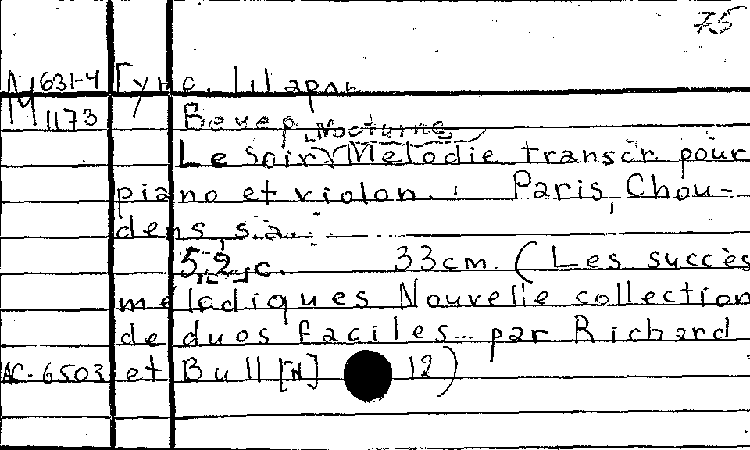 75
М631-4 Гуно, Шарль
М1173 Вечер Nocturne
Le Soir Mélodie transcr. pour
piano et violon. Paris, Chou-
dens, s.a.
5,2, c. 33cm. (Les succès
méladiques Nouvelle collection
de duos faciles par Richard
AC-6503 et Bull [N] 12)